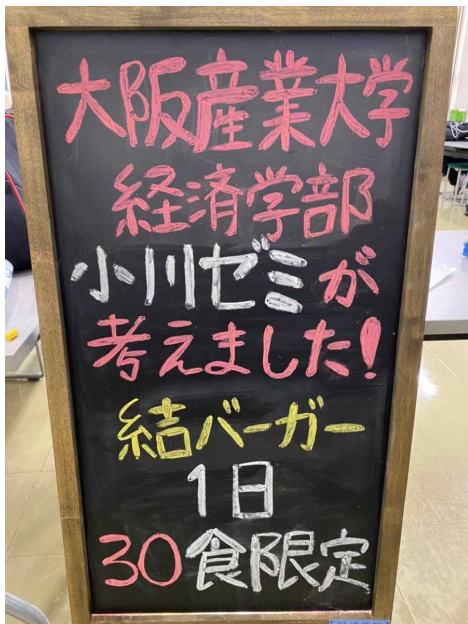 大阪産業大学
経済学部
小川ゼミが
考えました!
結バーガー
1日
30食限定